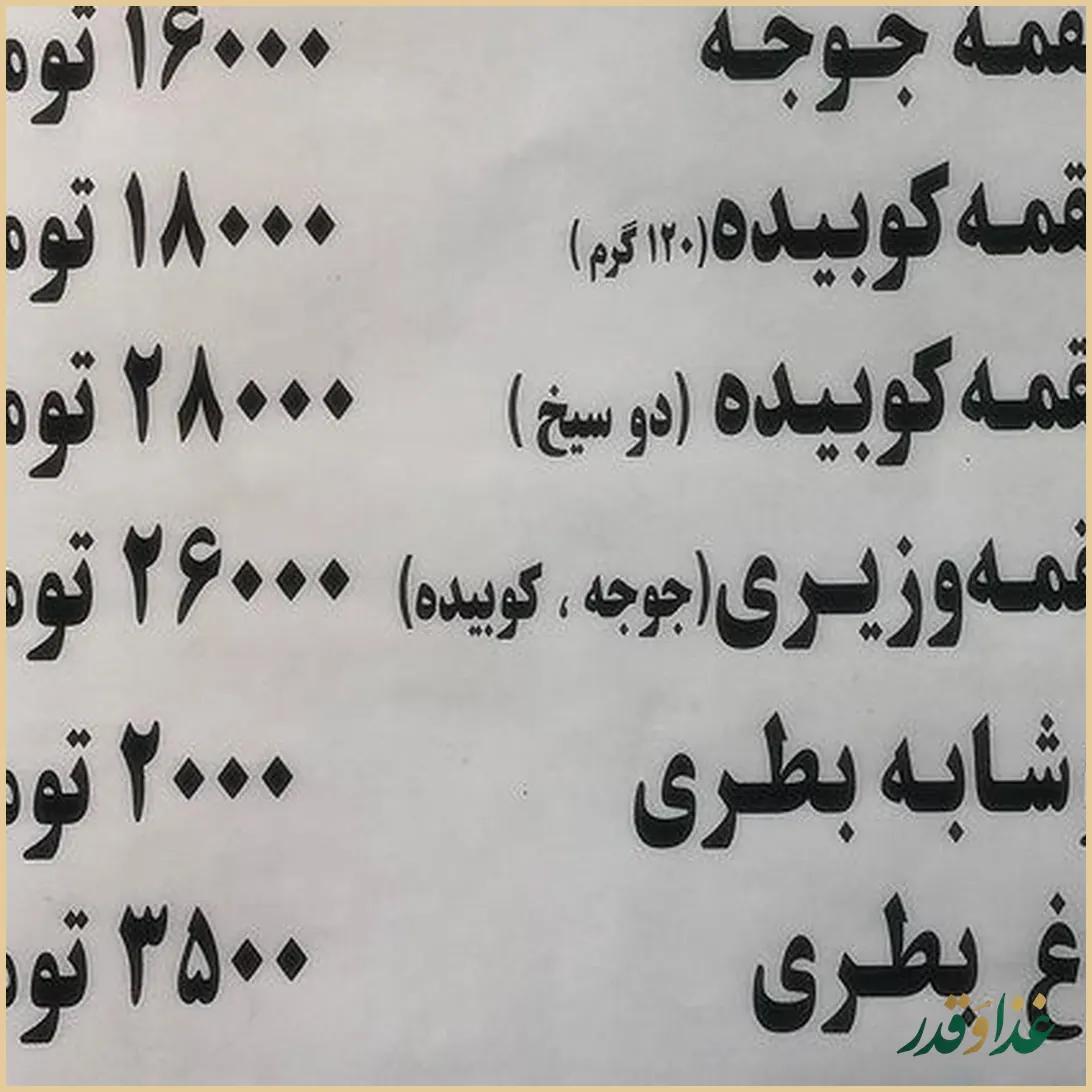 لقمه جوجه ۱۶۰۰۰ تومان
لقمه کوبیده (۱۲۰ گرم) ۱۸۰۰۰ تومان
لقمه کوبیده (دو سیخ) ۲۸۰۰۰ تومان
لقمه وزیری (جوجه ، کوبیده) ۲۶۰۰۰ تومان
نوشابه بطری ۲۰۰۰ تومان
دوغ بطری ۳۵۰۰ تومان
غذا و قدر